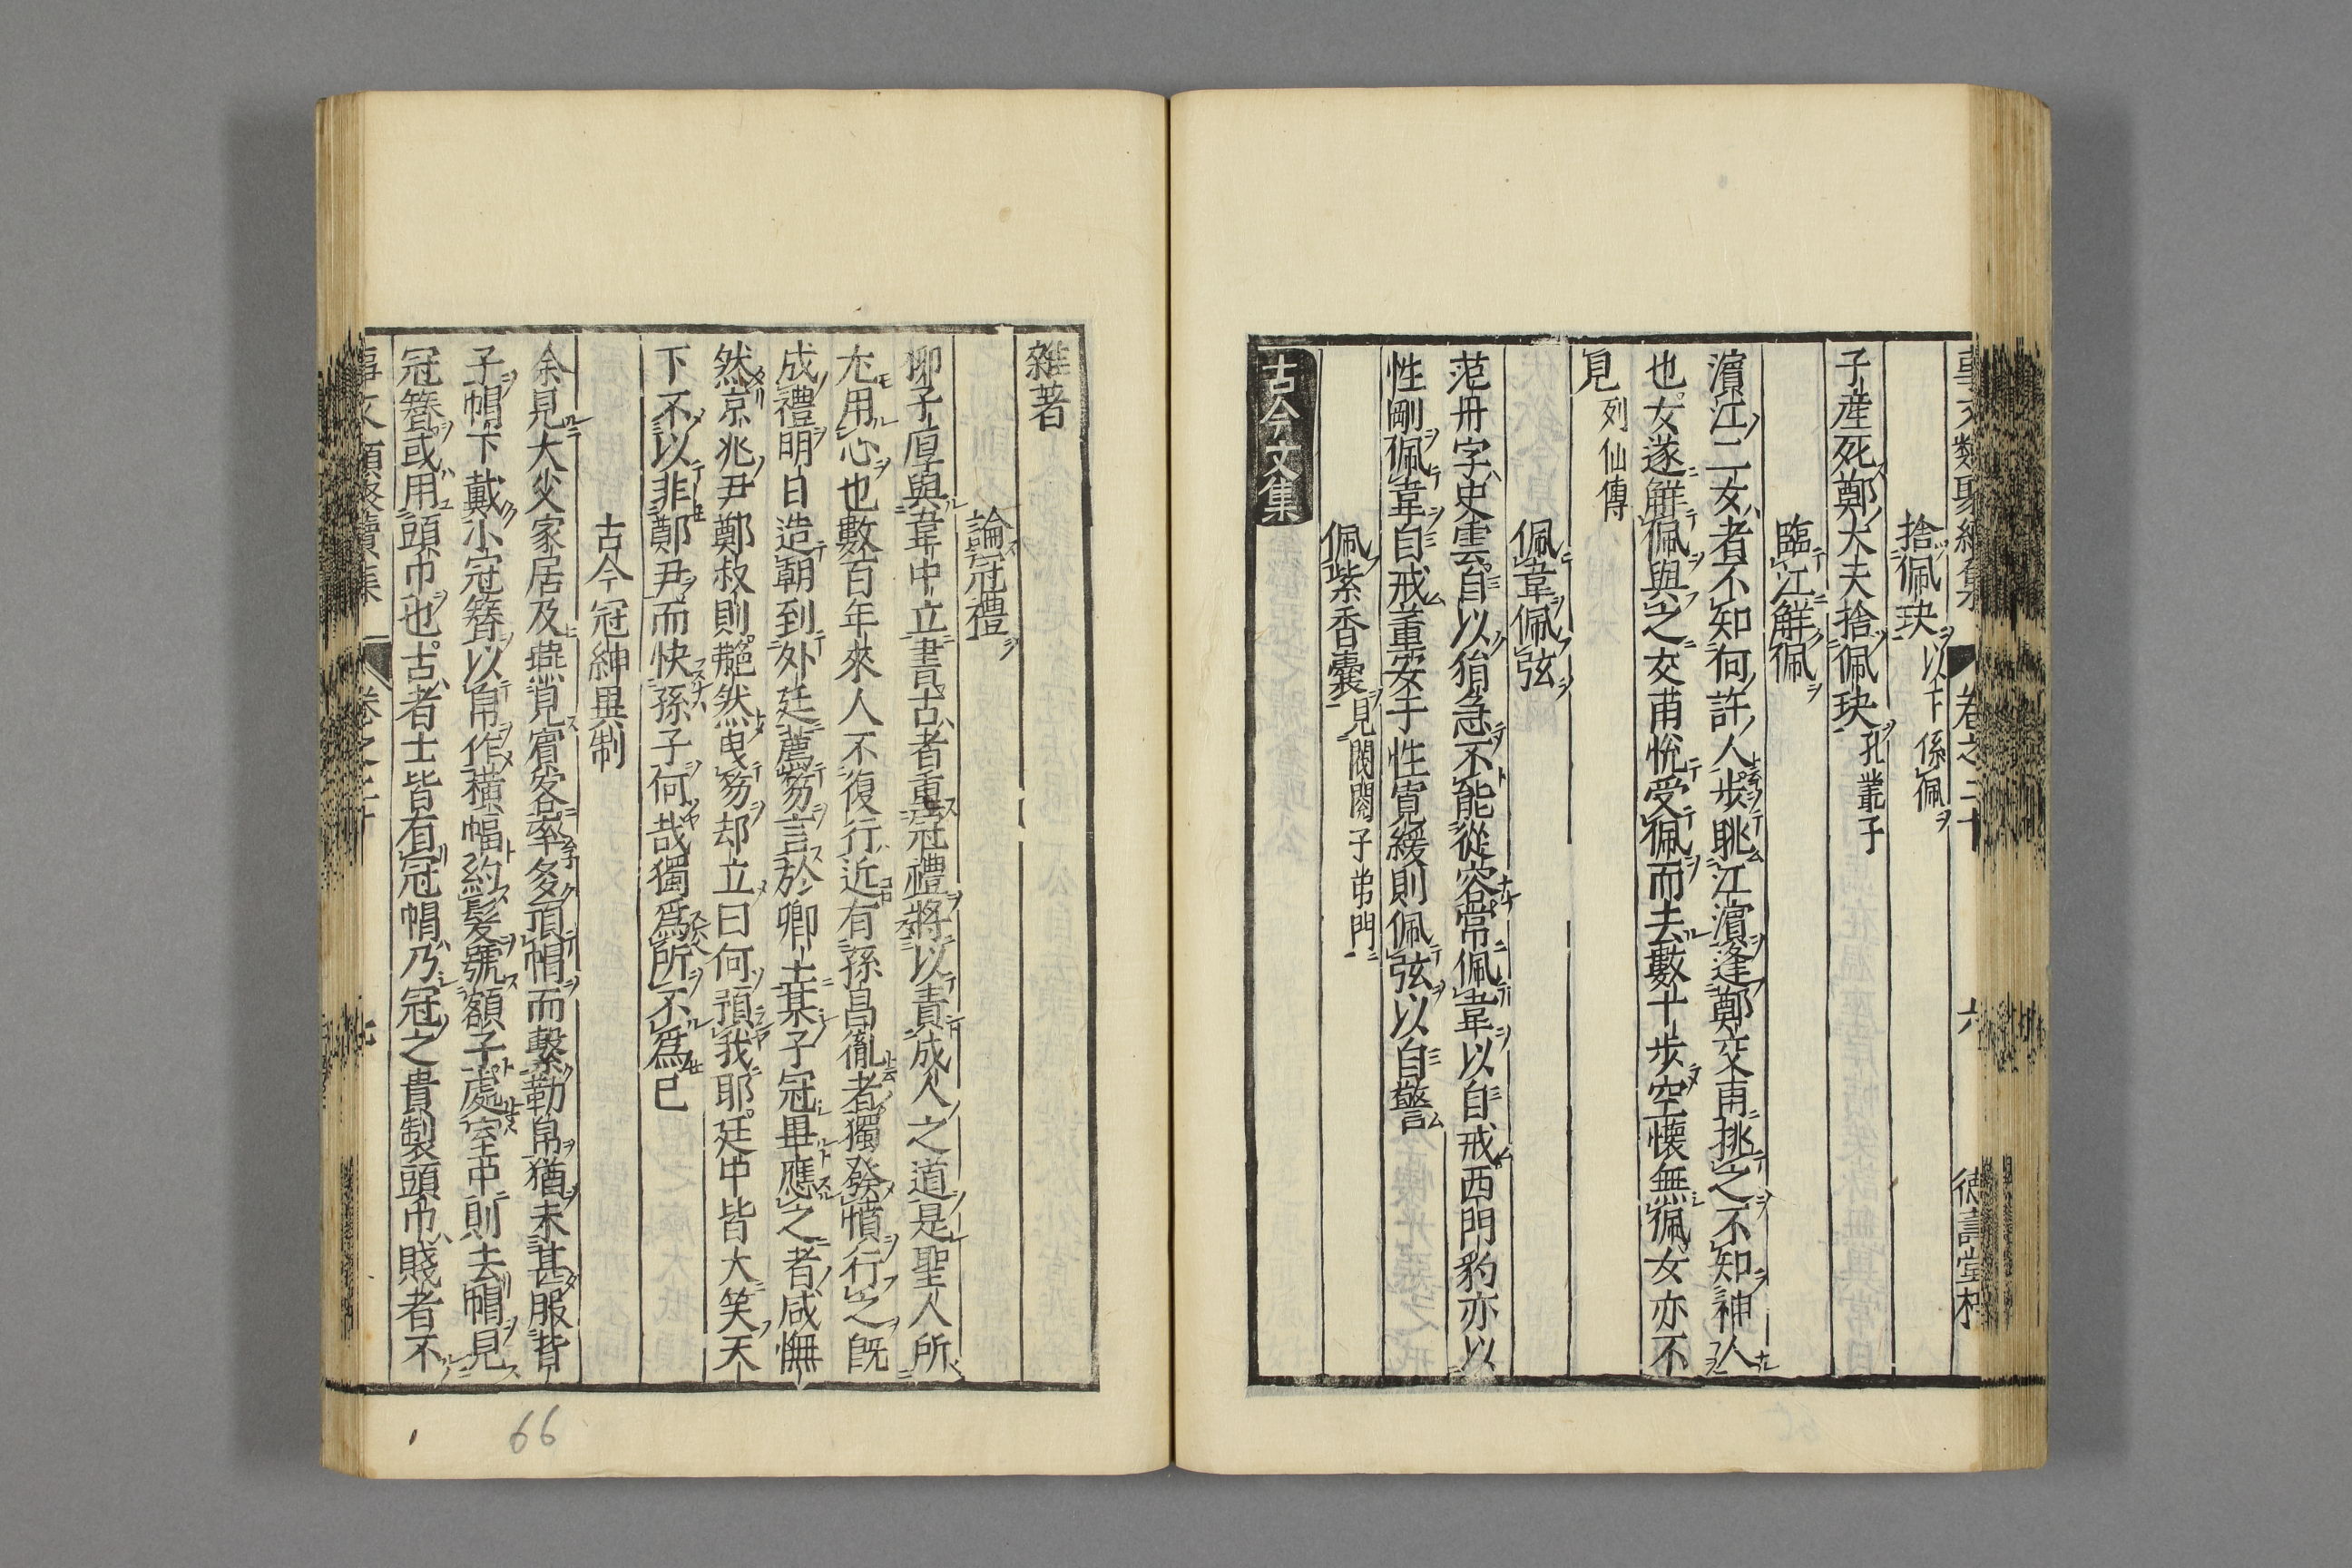 事文類聚續集 卷之二十 六 德壽堂梓
捨佩玦以下係佩
子産死鄭大夫捨佩玦孔叢子
臨江解佩
濵江二女者不知何許人步眺江濵逢鄭交甫挑之不知神人
也女遂解佩與之交甫悅受佩而去數十步空懷無佩女亦不
見列仙傳
佩韋佩弦
范冉字史雲自以狷急不能從容常佩韋以自戒西門豹亦以
性剛佩韋自戒董安于性寛緩則佩弦以自警
佩紫香囊見閥閲子弟門
古今文集
雜著
論冠禮
柳子厚與韋中立書古者重冠禮將以責成人之道是聖人所
尤用心也數百年來人不復行近有孫昌胤者獨發憤行之既
成禮明日造朝到外廷薦笏言於卿士某子冠畢應之者咸憮
然京兆尹鄭叔則艴然曳笏却立曰何預我耶廷中皆大笑天
下不以非鄭尹而快孫子何哉獨爲所不爲已
古今冠紳異制
余見大父家居及燕見賓客率多頂帽而繫勒帛猶未甚服背
子帽下戴小冠簪以帛作橫幅約髮號額子處室中則去帽見
冠簪或用頭巾也古者士皆有冠帽乃冠之貴製頭巾賤者不
事文類聚續集 卷之二十 七
66